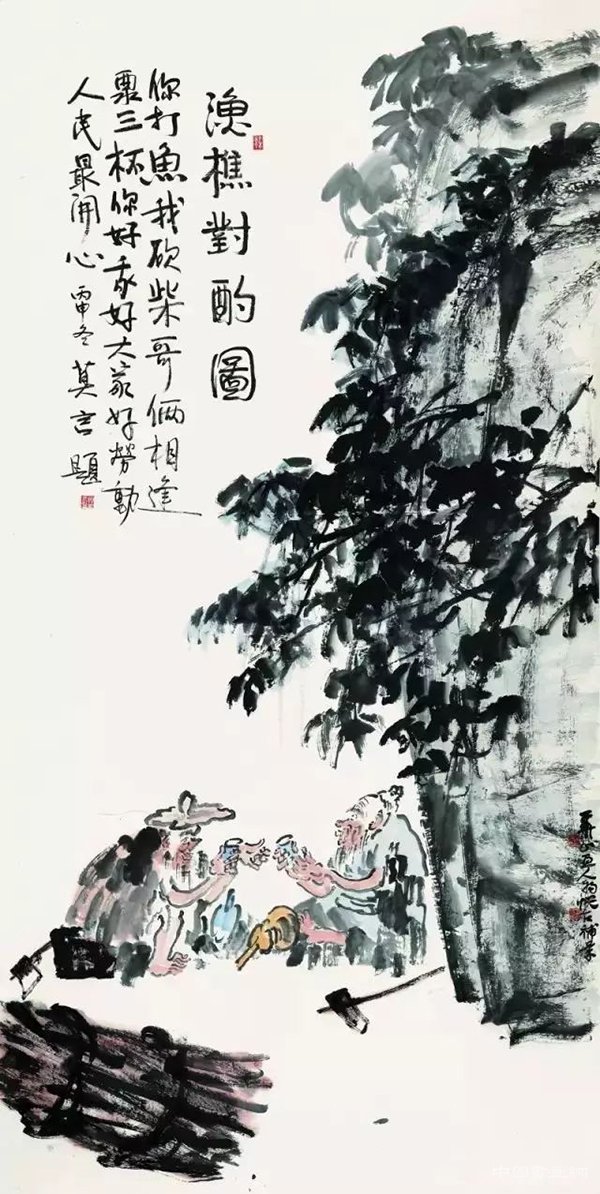 漁樵對酌圖
你打魚我砍柴哥倆相逢
三杯你好我好大家好勞動
人民最開心 丙申冬 莫言題
人物